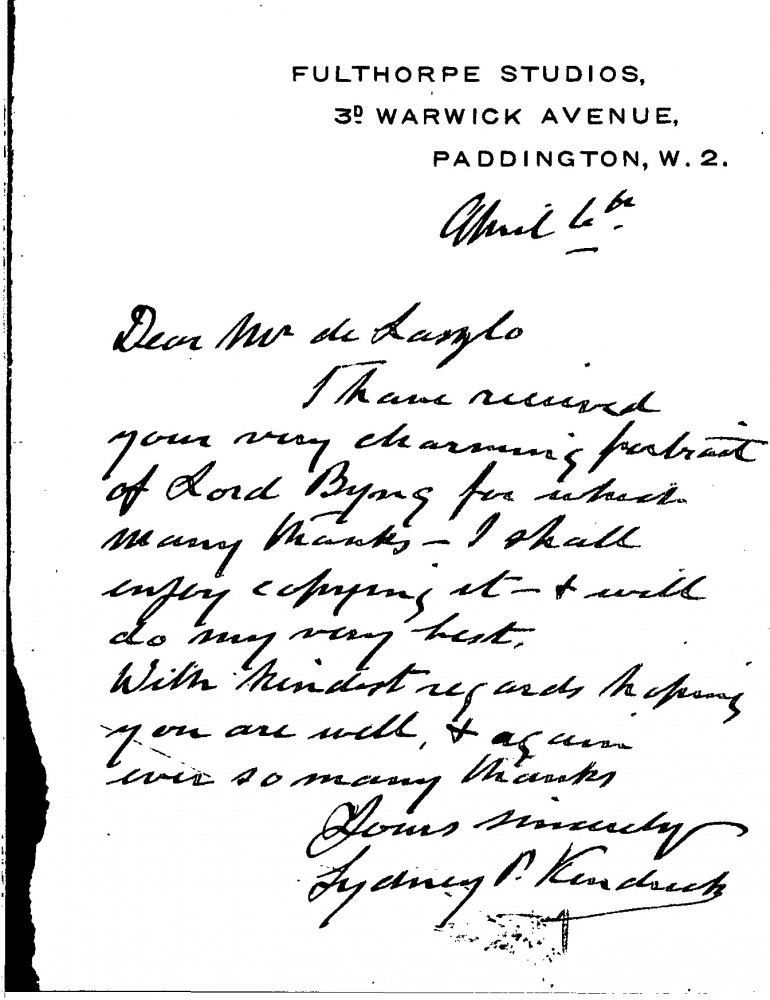 FULTHORPE STUDIOS,
3D WARWICK AVENUE,
PADDINGTON, W. 2.
April 6th
Dear Mr de Laszlo
I have received
your very charming portrait
of Lord Byng for which
many thanks – I shall
enjoy copying it – & will
do my very best.
With kindest regards hoping
you are well, & again
ever so many thanks
Yours sincerely
Sydney P. Kendrick